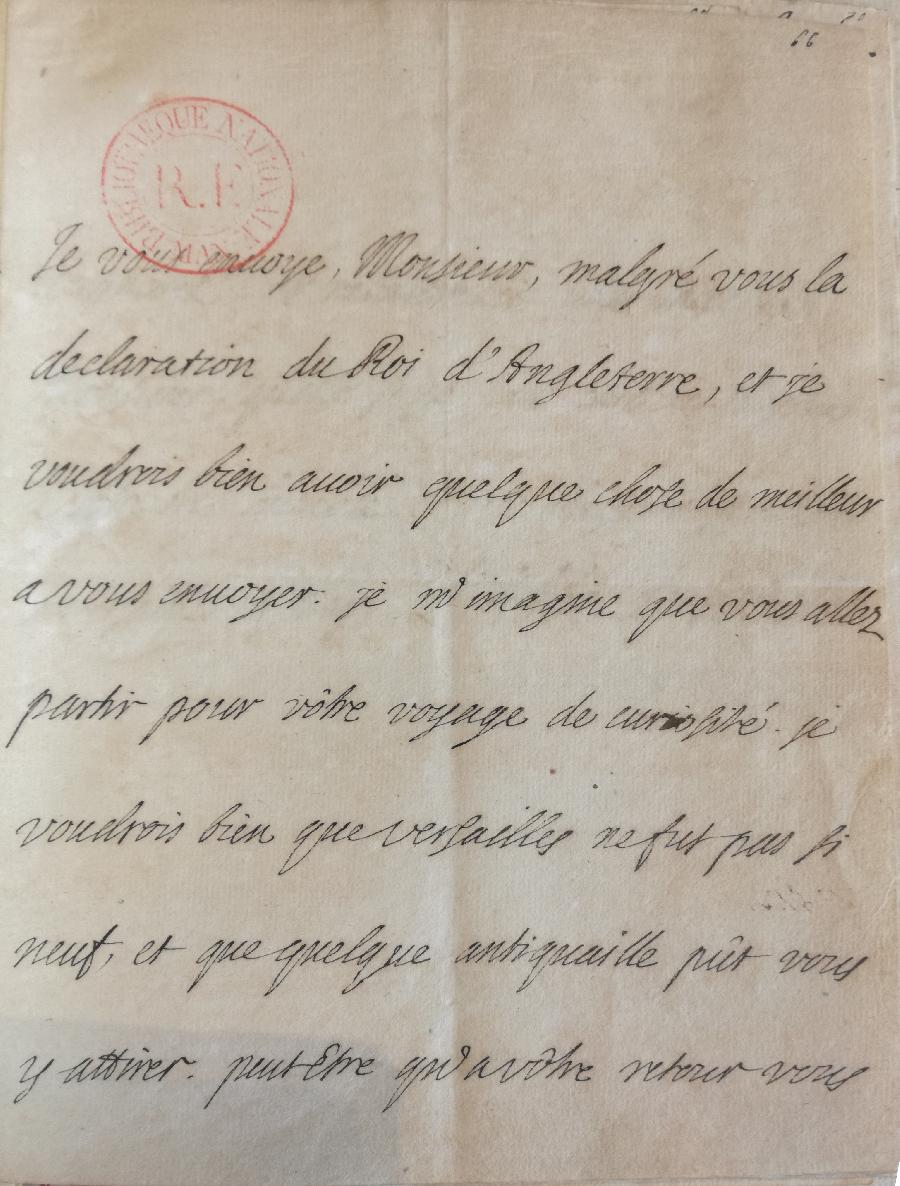 66
BIBLIOTHEQUE NATIONALE
R.F.
Je vous envoye, Monsieur, malgré vous la
declaration du Roi d'Angleterre, et je
voudrois bien auoir quelque chose de meilleur
a vous enuoyer. je m'imagine que vous allez
partir pour vôtre voyage de curiosité. je
voudrois bien que versailles ne fut pas si
neuf, et que quelque antiquaille pût vous
y attirer. peut Etre qu'a vôtre retour vous